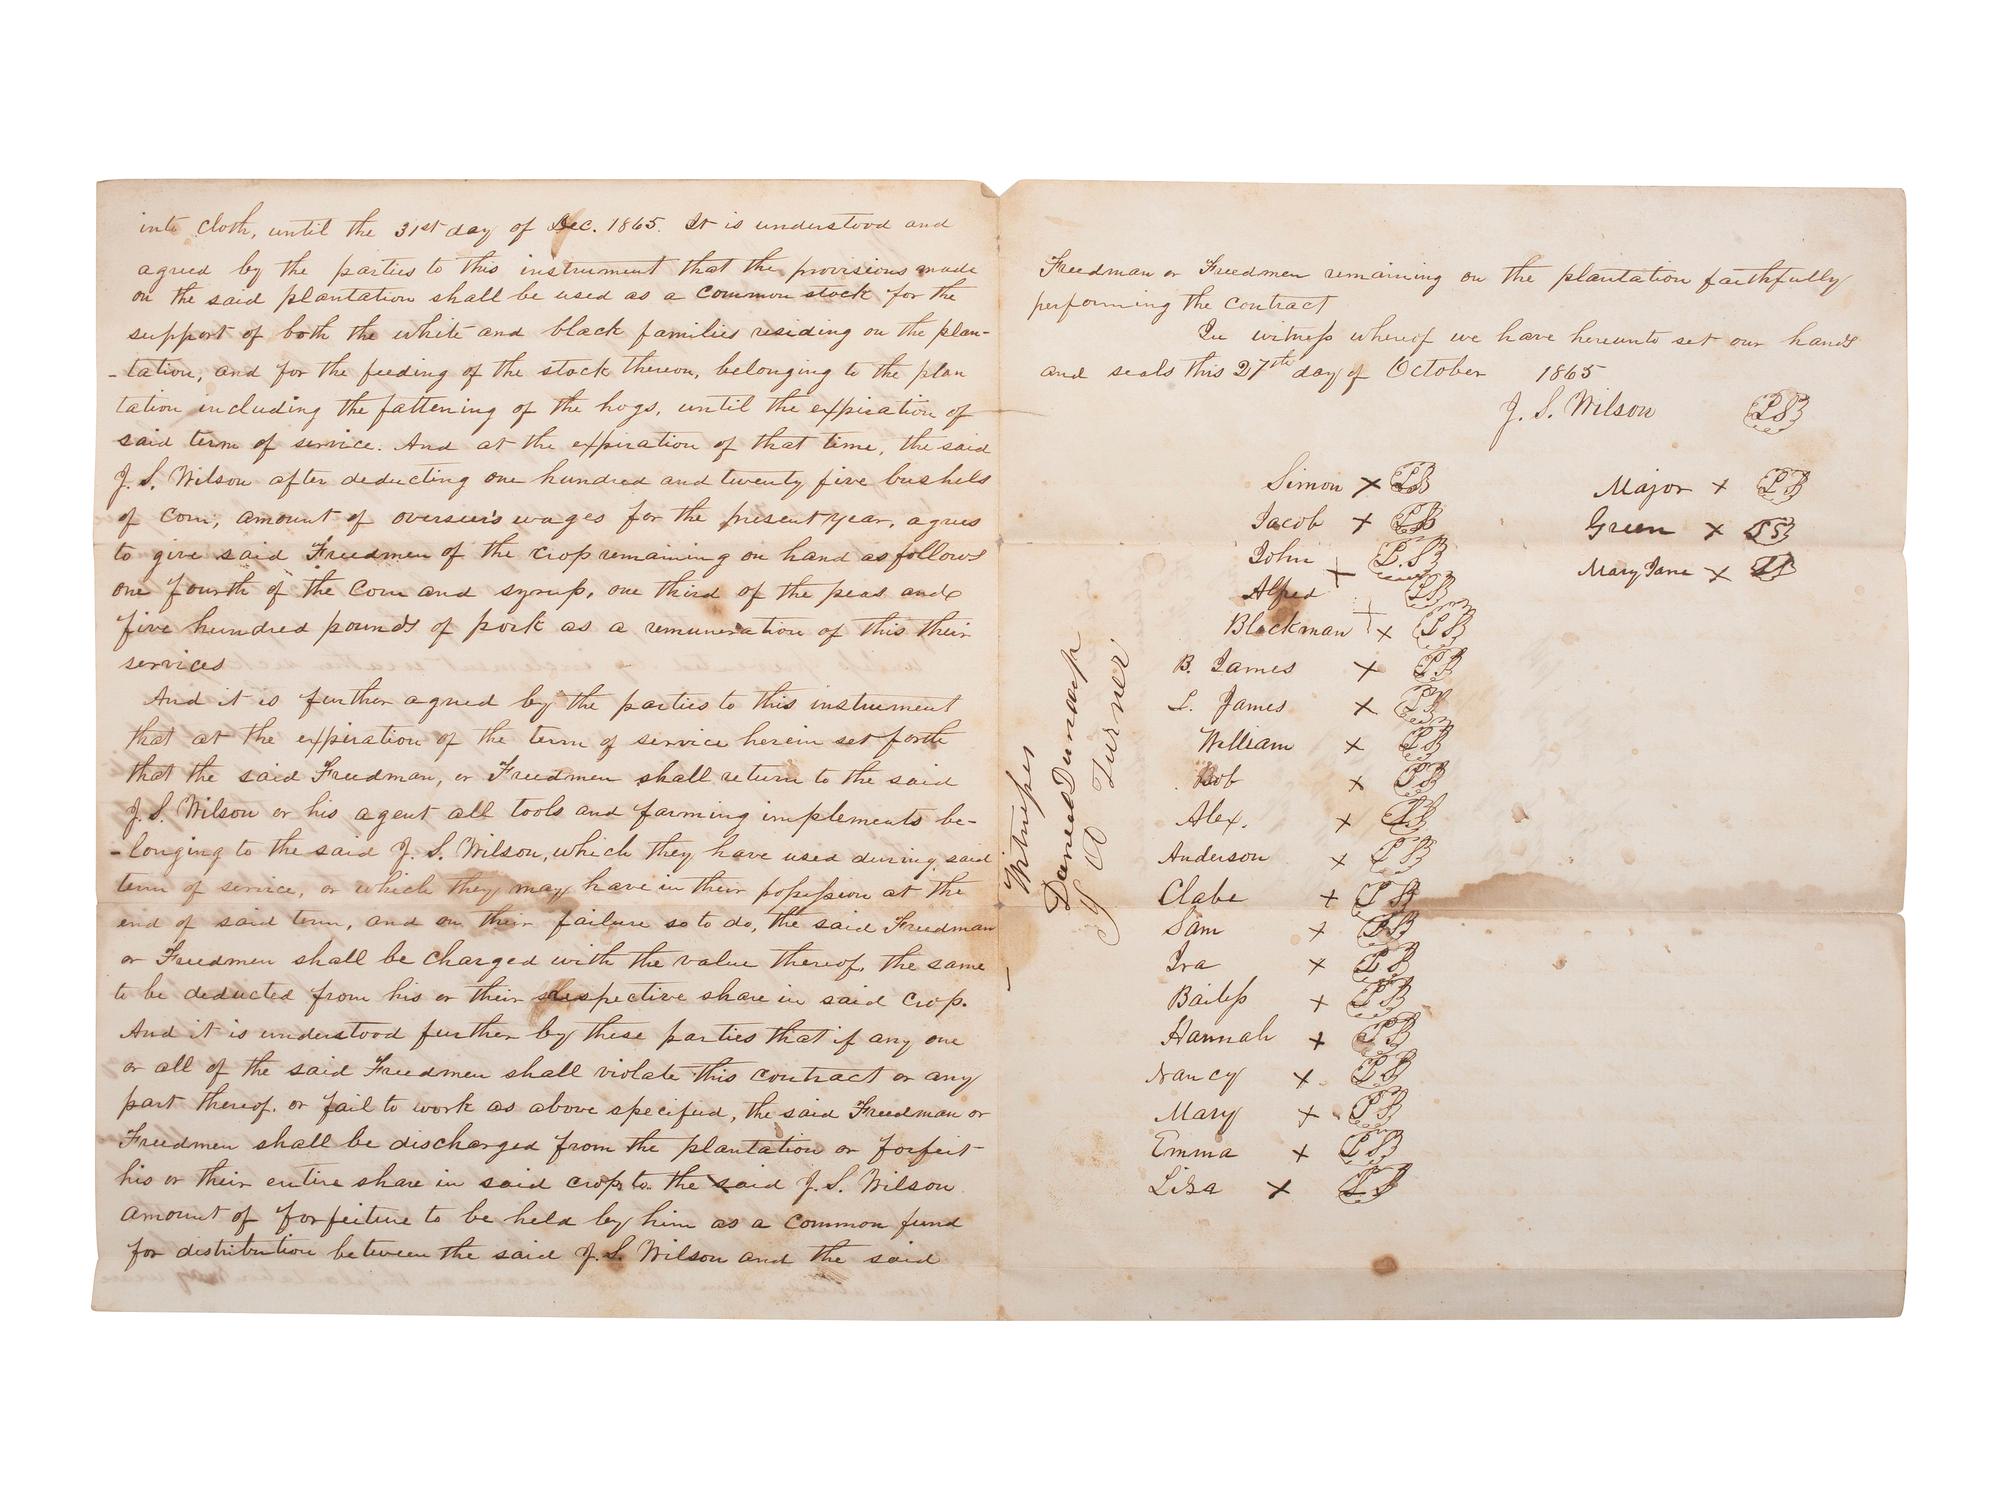 into cloth, until the 31st day of Dec. 1865. It is understood and
agreed by the parties to this instrument that the provisions made
on the said plantation shall be used as a common stock for the
support of both the white and black families residing on the plan-
-tation, and for the feeding of the stock thereon, belonging to the plan
tation including the fattening of the hogs, until the expiration of
said term of service. And at the expiration of that time, the said
J. S. Wilson after deducting one hundred and twenty five bushels
of corn, amount of overseer's wages for the present year, agrees
to give said Freedmen of the crop remaining on hand as follows
one fourth of the corn and syrup, one third of the peas and
five hundred pounds of pork as a remuneration of this their
services
And it is further agreed by the parties to this instrument
that at the expiration of the term of service herein set forth
that the said Freedman, or Freedmen shall return to the said
J. S. Wilson or his agent all tools and farming implements be-
-longing to the said J. S. Wilson, which they have used during said
term of service, or which they may have in their possession at the
end of said term, and on their failure so to do, the said Freedman
or Freedmen shall be charged with the value thereof, the same
to be deducted from his or their respective share in said crop.
And it is understood further by these parties that if any one
or all of the said Freedmen shall violate this contract or any
part thereof. or fail to work as above specified, the said Freedman or
Freedmen shall be discharged from the plantation or forfeit
his or their entire share in said crop to the said J. S. Wilson
amount of forfeiture to be held by him as a common fund
for distribution between the said J. S. Wilson and the said
Freedman or Freedmen remaining on the plantation faithfully
performing the contract
In witness whereof we have hereunto set our hands
and seals this 27th day of October 1865
J. S. Wilson LS
Simon x LS
Jacob x LS
John x L.S
Alfred LS
Blackman x LS
B. James x LS
L. James x LS
William x LS
Bob x LS
Alex. x LS
Anderson x LS
Clabe x LS
Sam x LS
Ira x LS
Bailess x LS
Hannah x LS
Nancy x LS
Mary x LS
Emma x LS
Liza x LS
Major x LS
Green x LS
Mary Jane x LS
Witness
Daniel Dunlap
J A Turner